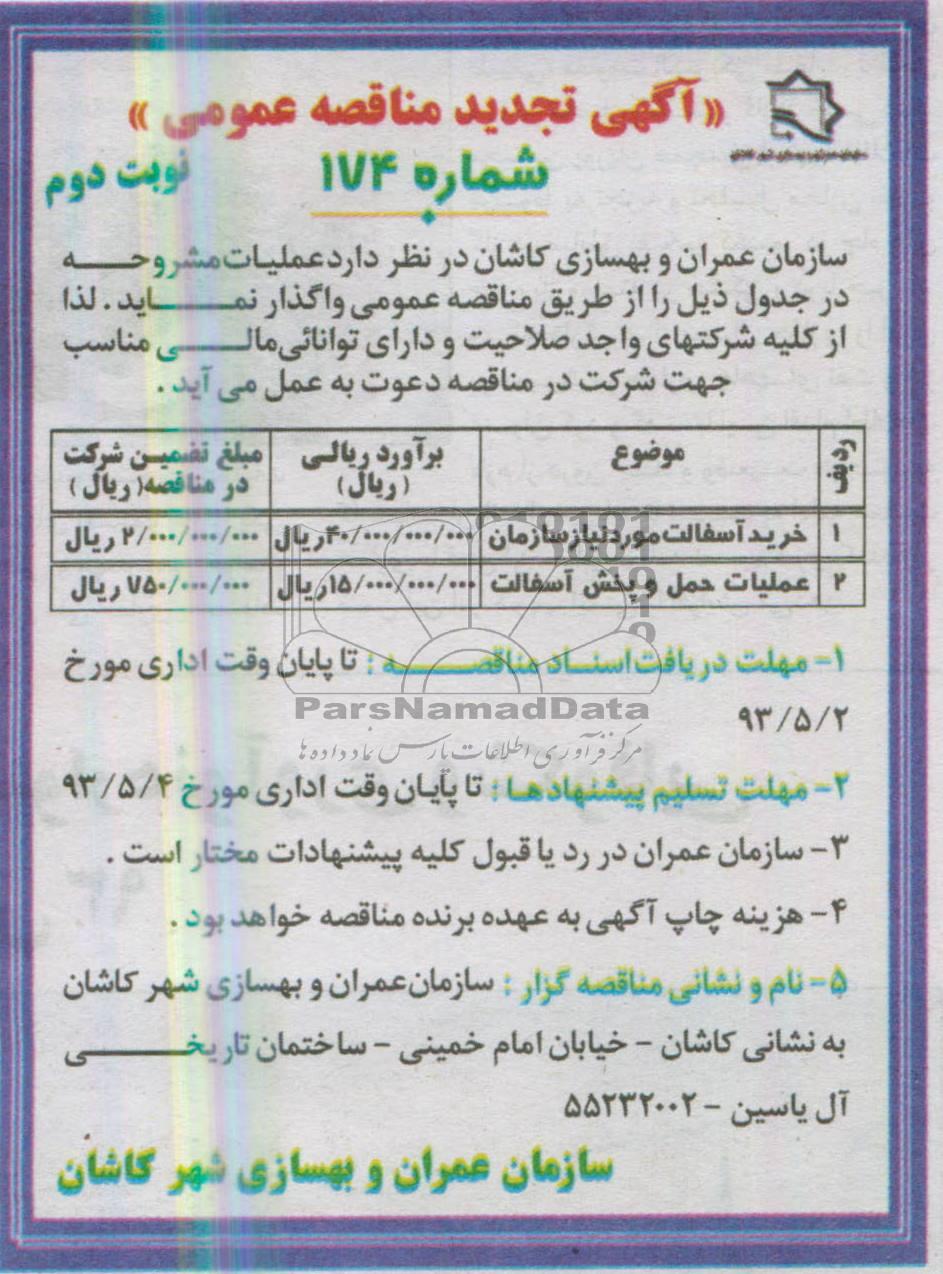 «آگهی تجدید مناقصه عمومی»
شماره ۱۷۴
نوبت دوم
سازمان عمران و بهسازی کاشان در نظر دارد عملیات مشروحه
در جدول ذیل را از طریق مناقصه عمومی واگذار نماید. لذا
از کلیه شرکتهای واجد صلاحیت و دارای توانائی مالی مناسب
جهت شرکت در مناقصه دعوت به عمل می آید.
ردیف موضوع برآورد ریالی (ریال) مبلغ تضمین شرکت در مناقصه (ریال)
۱ خرید آسفالت مورد نیاز سازمان ۴۰/۰۰۰/۰۰۰/۰۰۰ ریال ۲/۰۰۰/۰۰۰/۰۰۰ ریال
۲ عملیات حمل و پخش آسفالت ۱۵/۰۰۰/۰۰۰/۰۰۰ ریال ۷۵۰/۰۰۰/۰۰۰ ریال
۱- مهلت دریافت اسناد مناقصه : تا پایان وقت اداری مورخ
۹۳/۵/۲
ParsNamadData
مرکز فرآوری اطلاعات پارس نماد داده ها
۲- مهلت تسلیم پیشنهادها : تا پایان وقت اداری مورخ ۹۳/۵/۴
۳- سازمان عمران در رد یا قبول کلیه پیشنهادات مختار است.
۴- هزینه چاپ آگهی به عهده برنده مناقصه خواهد بود.
۵- نام و نشانی مناقصه گزار : سازمان عمران و بهسازی شهر کاشان
به نشانی کاشان - خیابان امام خمینی - ساختمان تاریخی
آل یاسین - ۵۵۲۳۲۰۰۲
سازمان عمران و بهسازی شهر کاشان